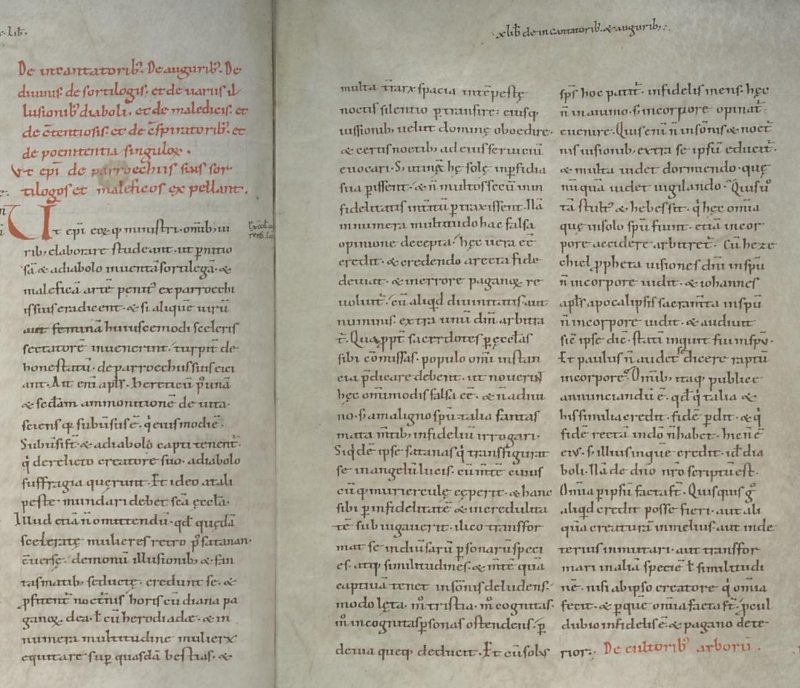 lib̄.
x lib̄ de incantatorib; & augurib;
De incantatorib;. De augurib;. De
diuinis. de sortilogis. et de uariis il
lusionib; diaboli. et de maledicis. et
de c̄tentiosis. et de c̄spiratorib;. et
de poenitentia singuloꝝ.
Vt ep̄i de parrochiis suis sor-
tilogos et maleficos expellant.
Ut ep̄i eoꝝq; ministri. omib; ui
rib; elaborare studeant. ut pnitio
sā & a diabolo inuentā sortilegā. &
maleficā artē penit; ex parrochi
is suis eradicent. & si aliquē uirū
aut feminā huiuscemodi sceleris
sectatorē inuenerint. turpit̄ de
honestatū. de parrochiis suis eici
ant. Ait eni apl's. Hereticū p' unā
& sedam ammonitionē de uita.
sciens q̄ subūsus ē. q̄ eiusmodi ē.
Subūsi st̄. & a diabolo capti tenent̄.
qͥ derelicto creatore suo. a diabolo
suffragia querunt. Et ideo a tali
peste mundari debet sc̄a eccl̄a.
Illud etiā n̄ omittendū. qd̄ quędā
sceleratę mulieres retro p' satanan.
c̄uersę. demonū illusionib; & fan
tasmatib; seductę. credunt se. &
p̄fitent̄ nocturnis horis cū diana pa
ganoꝝ dea. ł cū herodiade. & in
numera multitudine mulierꝝ
equitare sup quasdā bestias. &
multa tr̄arꝝ spacia intēpestę
noctis silentio p̄transire. eiusq;
iussionib; uelut dominę oboedire.
& certis noctib; ad eius seruitiū
euocari. S; utinā hę solę in p̄fidia
sua pissent. & n̄ multos secū in in
fidelitatis intitū p̄traxissent. Nā
innumera multitudo hac falsa
opinione decepta. hęc uera ēē
credit. & credendo a recta fide
deuiat. & in errorē paganoꝝ re
uoluit̄. cū aliqd diuinitatis. aut
numinis. extra unū dm̄ arbitra
t̄. Quappt̄ sacerdotes p ęccl̄as
sibi cōmissas. populo om̄i instan
tia p̄dicare debent. ut nouerint
hęc omnimodis falsa ēē. & n̄ a diui
no. s; a maligno sp̄u talia fantas
mata m̄tib; infideliū irrogari.
Siqͥdē ipse satanas qͥ transfigurat
se in angelū lucis. cū m̄tē cuius
cūq; mulierculę cęperit. & hanc
sibi p infidelitatē & incredulita
tē subiugauerit. ilico transfor
mat se in diuersarū psonarū speci
es. atq; similitudines. & m̄tē quā
captiuā tenet in sōnis deludens.
modo lęta. m° tristia. m° cognitas.
m° incognitas psonas ostendens. p
deuia queq; deducit. Et cū solus
sp̄s hoc patit̄. infidelis mens. hęc
n̄ in animo. s; in corpore opinat̄
euenire. Quis enī n̄ in sōnis & noct̄
nis uisionib; extra se ipsū educit̄.
& multa uidet dormiendo. quę
nūquā uidet uigilando. Quis u°
tā stult; & hebes sit. qͥ hęc om̄ia
quę in solo sp̄u fiunt. etiā in cor
pore accidere arbitret̄. Cū heze
chiel p̄pheta uisiones dn̄i in sp̄u
n̄ in corpore uidit. & iohannes
apl̄s apocalipsis sacram̄ta in sp̄u
n̄ in corpore uidit & audiuit
sic ipse dic̄. statī inquit fui in sp̄u.
Et paulus n̄ audet se dicere raptū
in corpore. Om̄ib; itaq; publice
annunciandū ē. qd̄ qͥ talia &
his similia credit. fidē p̄dit. & qͥ
fidē rectā in do n̄ habet. hic n̄ ē
ei;. s; illius in quē credit. id ē dia
boli. Nā de dn̄o nr̄o scriptū est.
Om̄ia p ipsū facta st̄. Quisquis g°
aliqd credit posse fieri. aut ali
quā creaturā in melius. aut in de
terius inmutari. aut transfor
mari in aliā speciē ł similitudi
nē. nisi ab ipso creatore qͥ om̄ia
fecit. & p quē om̄ia facta st̄. p̄cul
dubio infidelis ē. & pagano dete-
rior. De cultorib; arborū.